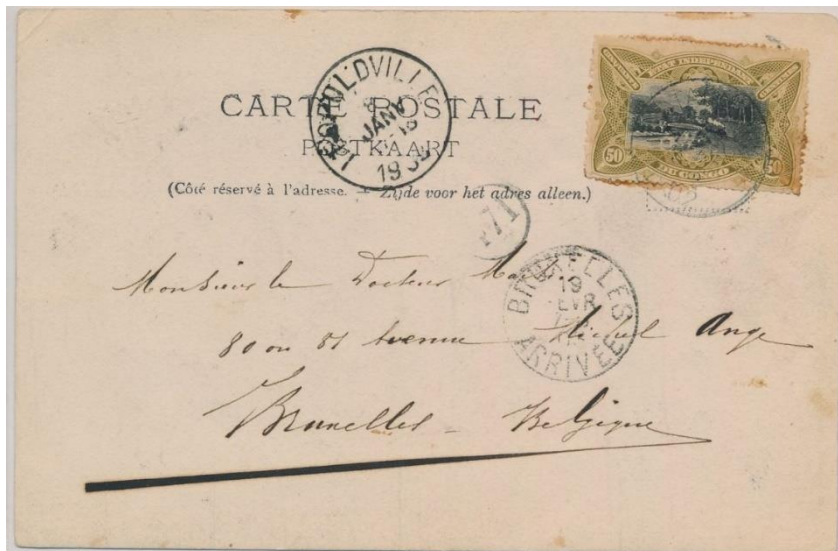 CARTE POSTALE
POSTKAART
(Côté réservé à l'adresse. — Zijde voor het adres alleen.)
LEOPOLDVILLE
JANV
ETAT INDEPENDANT
DU CONGO
50
50
BRUXELLES
19
ARRIVÉE
Monsieur le Docteur
80 ou 81 Avenue Michel Ange
Bruxelles - Belgique